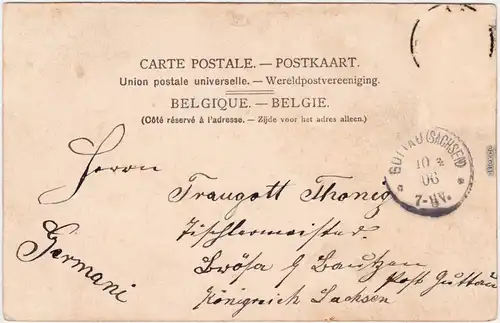 CARTE POSTALE. — POSTKAART.
Union postale universelle. — Wereldpostvereeniging.
BELGIQUE. — BELGIE.
(Côté réservé à l'adresse. — Zijde voor het adres alleen.)
GUTTAU (SACHSEN)
10
06
7-8V.
Herrn
Traugott Thonig
Tischlermeister
Brösa b/ Bautzen Post Guttau
Königreich Sachsen
Germani